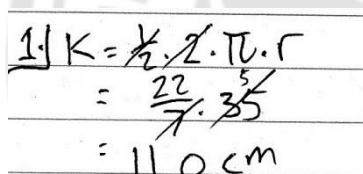 1. K = 1/2 . 2 . π . r
= 22/7 . 35 5
= 110 cm